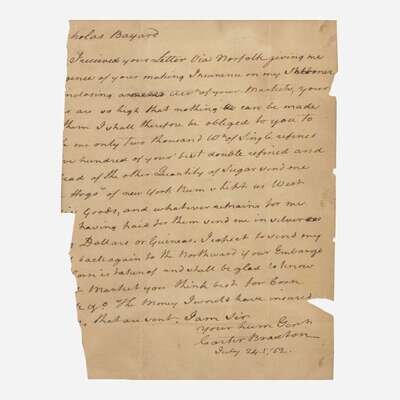 holas Bayard
I received your Letter Via Norfolk giving me
gence of your making Insurance on my Schooner
inclosing of your Markets, your
s are so high that nothing can be made
them I shall therefore be obliged to you to
me only two thousand Wt. of Single refined
ve hundred of your best double refined and
ead of the other Quantity of Sugar send me
Hogs. of new York Rum & West
Goods, and whatever remains for me
having paid for them send me in silver
Dollars or Guineas. I expect to send my
back again to the Northward if your Embargo
is taken of and shall be glad to know
Market you think best for Corn
The Money I would have insured
that are sent. I am Sir
Your hum Servt
Carter Braxton
July 24. 1762.